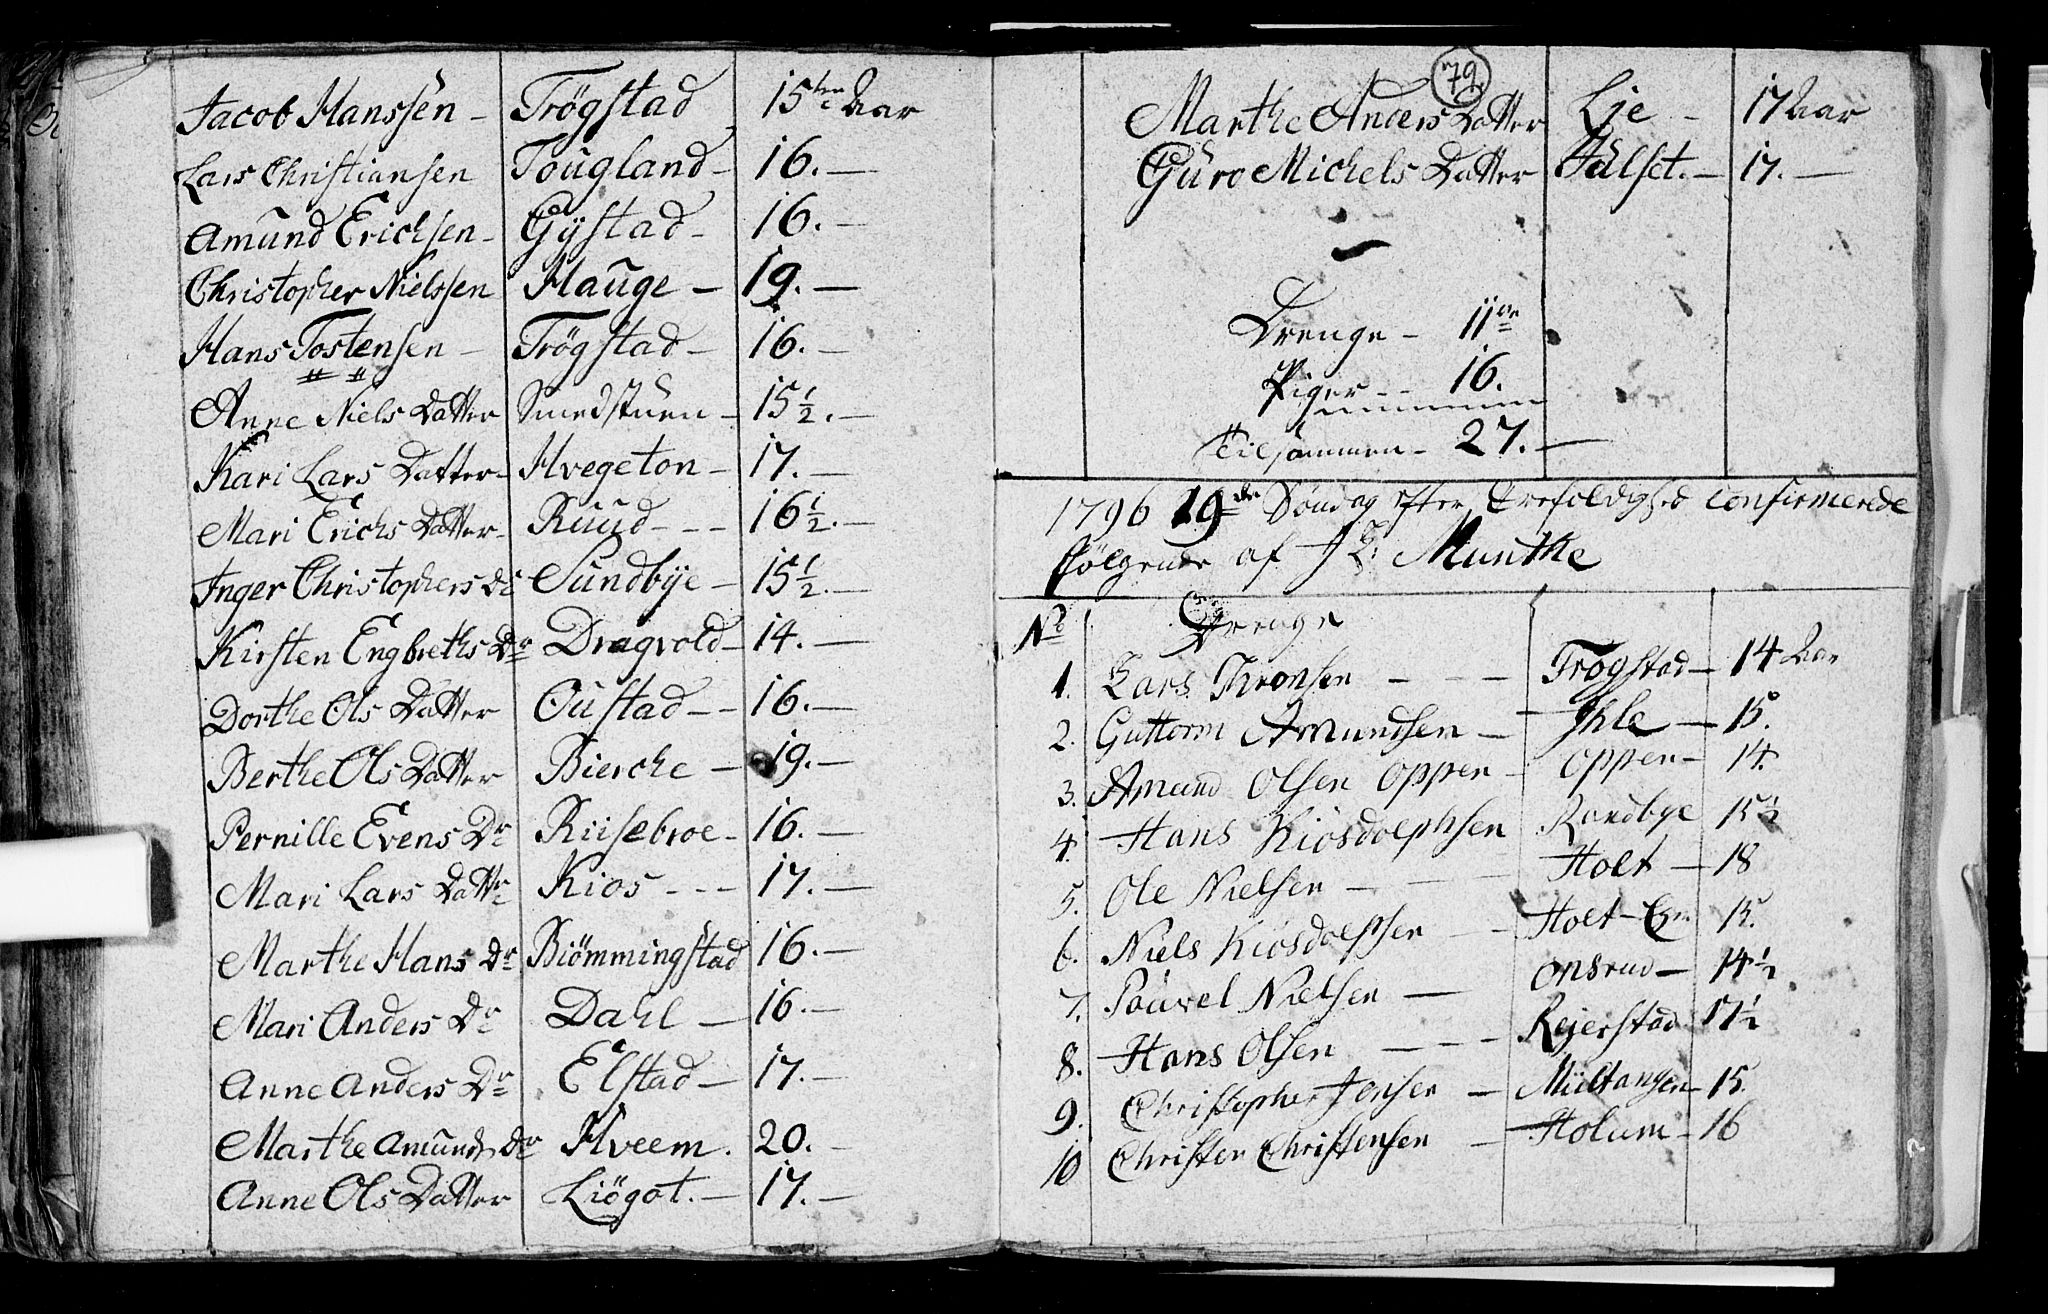 Jacob Hanssen - Trögstad 15ten Aar
Lars Christiansen Tougland - 16. -
Amund Erichsen - Gÿstad - 16. -
Christopher Nielssen Hauge - 19. -
Hans Tostensen - Trögstad - 16. -
Anne Niels Datter Smedstuen - 15 1/2. -
Kari Lars Datter - Hvegeton - 17. -
Mari Erichs Datter - Ruud - - - 16 1/2. -
Inger Christophers Dr Sundbÿe - 15 1/2. -
Kirsten Engbreths Dr Dragvold - 14. -
Dorthe Ols Datter Oustad - - 16. -
Berthe Ols Datter Bierche - 19. -
Pernille Evens Dr Riisebroe - 16. -
Mari Lars Dattr Kios - - - 17. -
Marthe Hans Dr Biömmingstad 16. -
Mari Anders Dr Dahl - 16. -
Anne Anders Dr Elstad - 17. -
Marthe Amunds Dr Hveem. 20. -
Anne Ols Datter Liögot. - 17. -
79
Marthe Anders Datter Lie - 17 Aar
Guro Michels Datter Julset. - 17. -
Drenge - 11ve
Piger - - 16.
Tilsammen - 27. -
1796 19de Söndag efter Trefoldighed confirmerede
fölgende af Munthe
No Drenge
1. Lars Thronsen - - - Trogstad - 14 Aar
2. Guttorm Amundsen - Ihle - 15.
3. Amund Olsen Oppen - Oppen - 14.
4. Hans Kiosdolphsen Randbye 15 1/2
5. Ole Nielsen - - - Holt - 18
6. Niels Kiosdolphsen - Holt - 15.
7. Pouvel Nielsen - Onsrud - 14 1/2
8. Hans Olsen - - - Rejerstad 17 1/2
9. Christopher Jensen - Miiltangen - 15.
10 Christen Christensen - Holum - 16